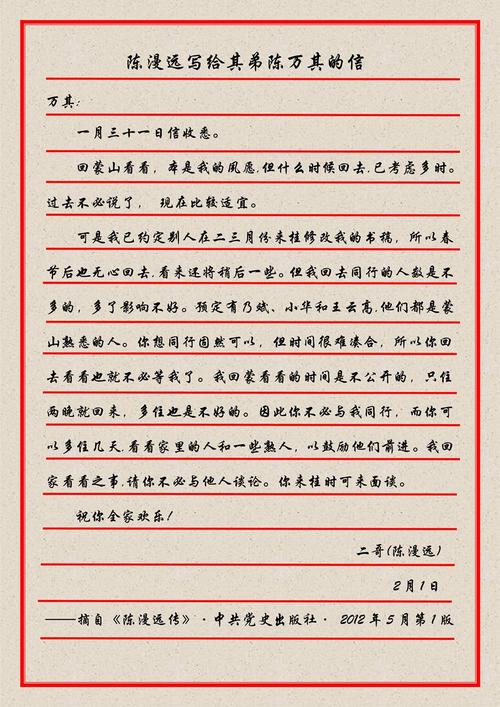 陈漫远写给其弟陈万其的信
万其:
一月三十一日信收悉。
回蒙山看看，本是我的夙愿,但什么时候回去,已考虑多时。
过去不必说了， 现在比较适宜。
可是我已约定别人在二三月份来桂修改我的书稿，所以春
节后也无心回去,看来还将稍后一些。但我回去同行的人数是不
多的，多了影响不好。预定有乃斌、小华和王云高,他们都是蒙
山熟悉的人。你想同行固然可以，但时间很难凑合，所以你回
去看看也就不必等我了。我回蒙看看的时间是不公开的，只住
两晚就回来，多住也是不好的。因此你不必与我同行，而你可
以多住几天,看看家里的人和一些熟人，以鼓励他们前进。我回
家看看之事,请你不必与他人谈论。你来桂时可来面谈。
祝你全家欢乐!
二哥(陈漫远)
2月1日
——摘自《陈漫远传》·中共党史出版社· 2012年5月第1版